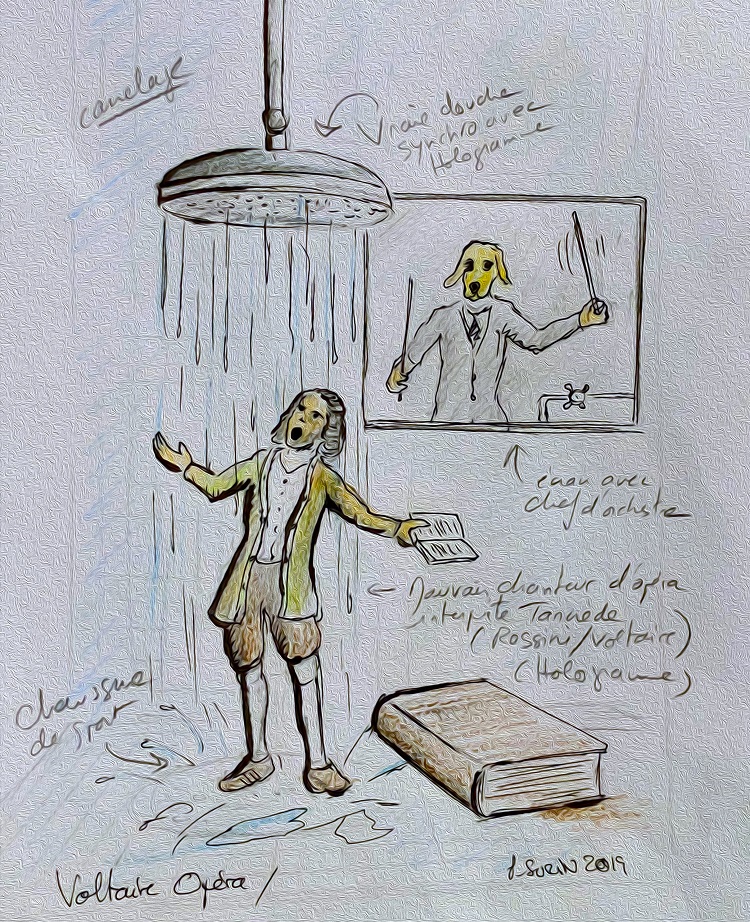 carrelage
Vraie douche
synchro avec
Hologramme
écran avec
chef d'orchestre
Mauvais chanteur d'opéra
interprète Tancrède
(Rossini/Voltaire)
(Hologramme)
Chaussures
de sport
Voltaire Opéra /
J. SURIN 2019